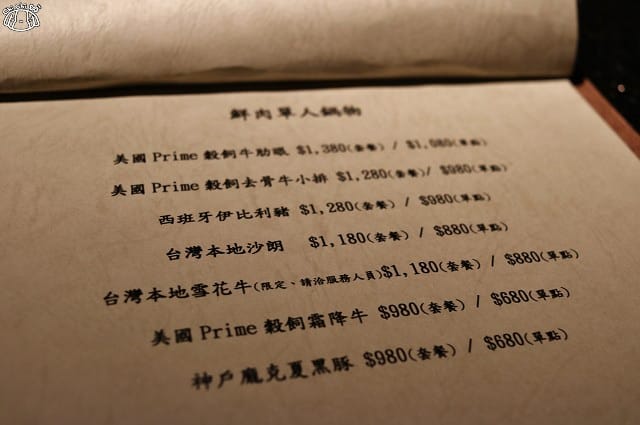 鮮肉單人鍋物
美國Prime穀飼牛肋眼 $1,380(套餐) / $1,080(單點)
美國Prime穀飼去骨牛小排 $1,280(套餐)/ $980(單點)
西班牙伊比利豬 $1,280(套餐) / $980(單點)
台灣本地沙朗 $1,180(套餐) / $880(單點)
台灣本地雪花牛(限定、請洽服務人員)$1,180(套餐) / $880(單點)
美國Prime穀飼霜降牛 $980(套餐) / $680(單點)
神戶龐克夏黑豚 $980(套餐) / $680(單點)